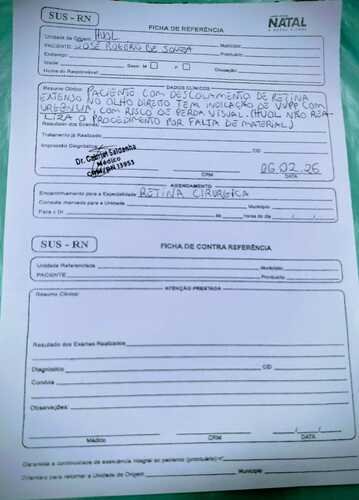 SUS - RN
NATAL
FICHA DE REFERÊNCIA
Unidade de Origem: HUOL Município:
PACIENTE: JOSÉ ROGÉRIO DE SOUZA Prontuário:
Endereço:
Idade: Sexo: M F Ocupação:
Nome do Responsável:
DADOS CLÍNICOS
Resumo Clínico: PACIENTE COM DESCOLAMENTO DE RETINA
EXTENSO NO OLHO DIREITO TEM INDICAÇÃO DE VVPP COM
URGÊNCIA COM RISCO DE PERDA VISUAL. (HUOL NÃO REA-
LIZA O PROCEDIMENTO POR FALTA DE MATERIAL)
Resultado dos Exames:
Tratamento já Realizado:
Impressão Diagnóstica: CID:
Saldanha
Médico
06.02.26
CRM DATA
AGENDAMENTO
Encaminhamento para a Especialidade: RETINA CIRÚRGICA
Consulta marcada para a Unidade: Município:
Para o Dr. Às horas do dia / /
SUS - RN
FICHA DE CONTRA REFERÊNCIA
Unidade Referenciada: Município:
PACIENTE: Prontuário:
ATENÇÃO PRESTADA
Resumo Clínico:
Resultado dos Exames Realizados:
Diagnóstico: CID:
Conduta:
Observações:
/ /
Médico CRM DATA
Garantida a continuidade de assistência integral ao paciente (prontuário) nº
Orientado para retornar a Unidade de Origem: Município: